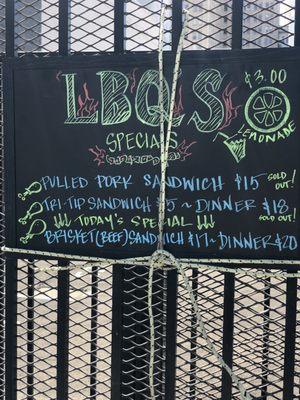 LBQ'S
$3.00
LEMONADE
SPECIALS
PULLED PORK SANDWICH $15 SOLD OUT!
TRI-TIP SANDWICH $15 ~ DINNER $18 SOLD OUT!
TODAY'S SPECIAL
BRISKET (BEEF) SANDWICH $17 ~ DINNER $20